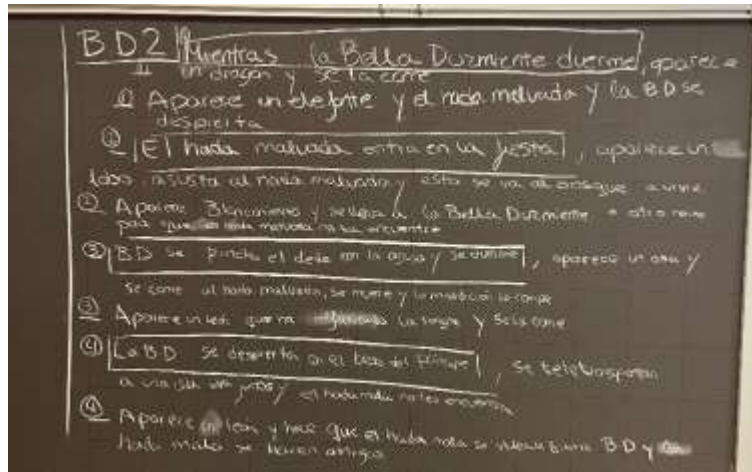 BD2 Mientras la Bella Durmiente duerme, aparece
un dragon y se la come
Aparece un elefante y el hada malvada y la BD se
despierta
El hada malvada entra en la fiesta, aparece un
lobo, asusta al hada malvada y esta se va al bosque a
② Aparece Blancanieves y se lleva a la Bella Durmiente a otro reino
para que hada malvada no la encuentre
③ BD se pincha el dedo con la aguja y se duerme, aparece un y
se come al hada malvada, se muere y la se rompe
③ Aparece un la y se la come
④ La BD se despierta con el beso del príncipe, se teletransportan
a una isla juntos y el hada mala no les encuentra
④ Aparece un leon y hace que el hada mala se buena BD y
hada mala se hacen amigas